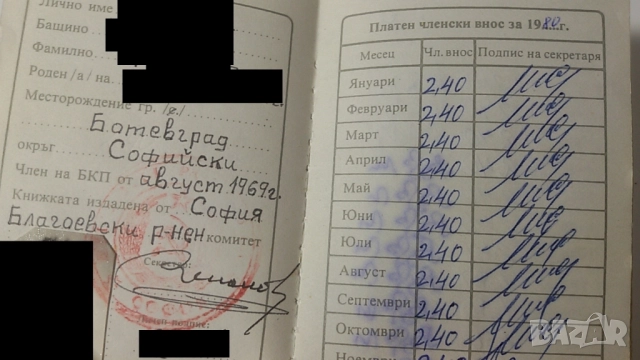 Лично име
Бащино
Фамилно
Роден /а/ на
Месторождение гр. /с./
Ботевград
окръг Софийски
Член на БКП от август 1969г.
Книжката издадена от София
Благоевски р-нен комитет
Секретар:
Платен членски внос за 1980 г.
Месец Чл. внос Подпис на секретаря
Януари 2,40
Февруари 2,40
Март 2,40
Април 2,40
Май 2,40
Юни 2,40
Юли 2,40
Август 2,40
Септември 2,40
Октомври 2,40
Ноември 2,40
BAZAR